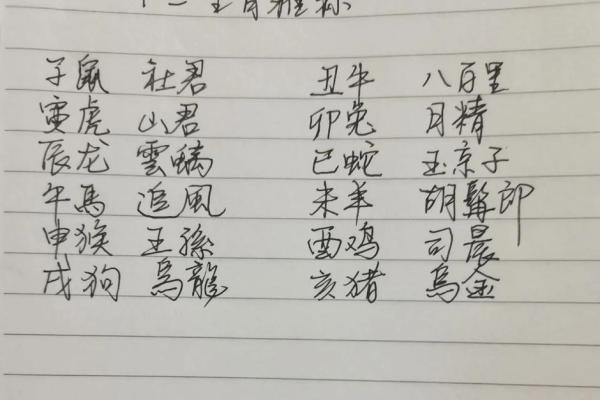 十二生肖雅称
子鼠 社君 丑牛 八百里
寅虎 山君 卯兔 月精
辰龙 雲螭 巳蛇 玉京子
午馬 追風 未羊 胡髯郎
申猴 王孫 酉鸡 司晨
戌狗 烏龍 亥猪 烏金